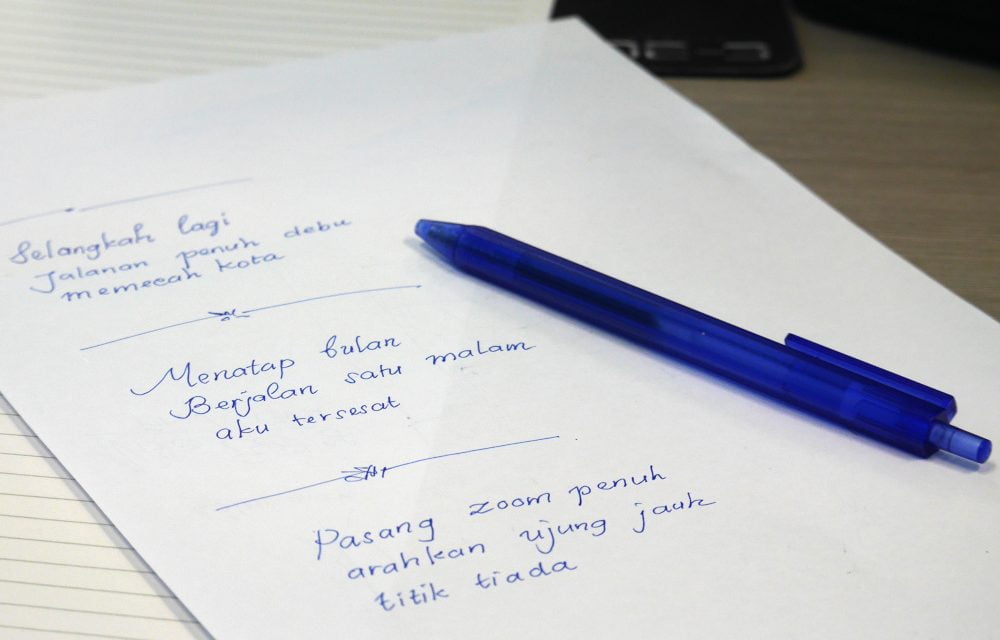 Selangkah lagi
Jalanan penuh debu
memecah kota
Menatap bulan
Berjalan satu malam
aku tersesat
Pasang zoom penuh
arahkan ujung jauh
titik tiada